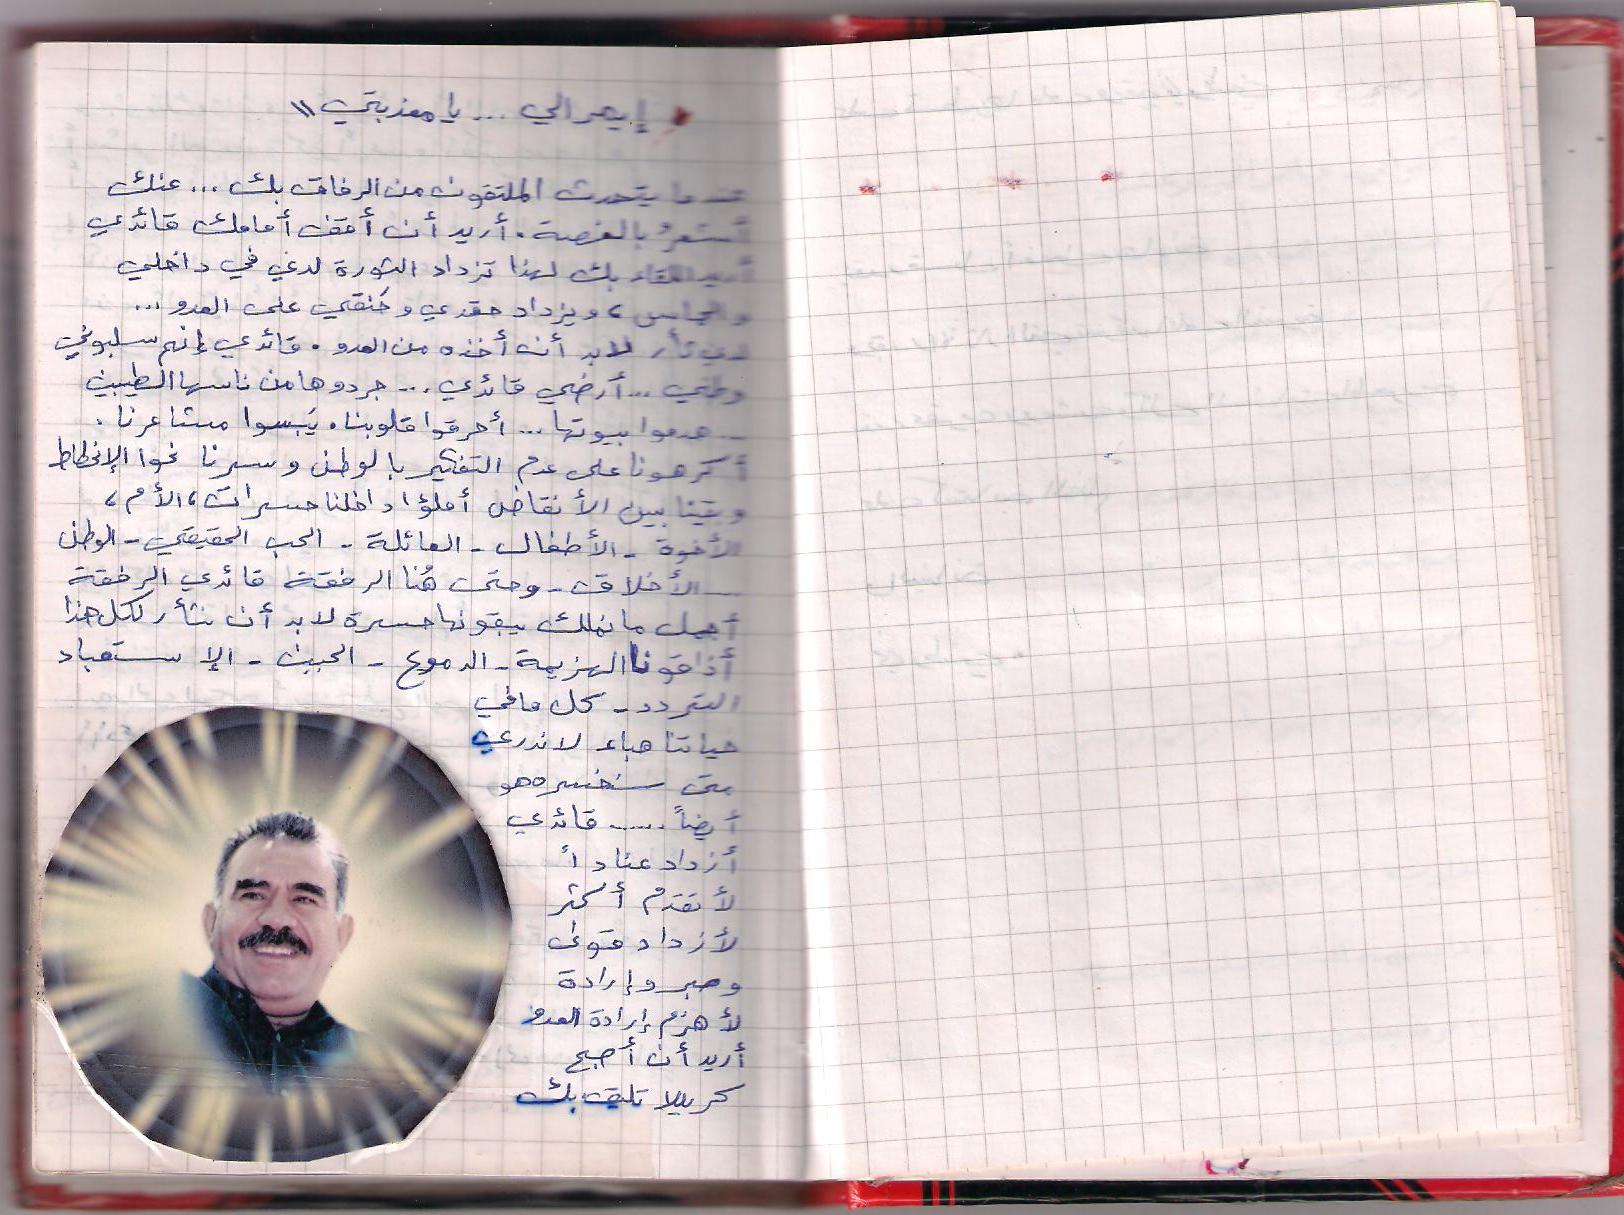 إيمرالي ... يا معذبتي "
عندما يتحدث الملتقون من الرفاق بك ... عنك
أشعرُ بالغصة . أريد أن أقف أمامك قائدي
أريد اللقاء بك لهذا تزداد الثورة لدي في داخلي
والحماس ، ويزداد حقدي وحَنقي على العدو ...
لدي ثأر لابد أن أخذه من العدو . قائدي إنهم سلبوني
وطني ... أرضي قائدي ... جردوها من ناسها الطيبين
... هدموا بيوتها ... أحرقوا قلوبنا . يَبسوا مشاعرنا .
أكرهونا على عدم التفكير بالوطن وسرنا نحوا الإنحطاط
وبقينا بين الأنقاض أملؤا داخلنا حسرات ، الأم ،
الأخوة - الأطفال - العائلة - الحب الحقيقي - الوطن
- الأخلاق - وحتى هُنا الرفقة قائدي الرفقة
أجمل ما نملك يبقونها حسرة لابد أن نثأر لكل هذا
أذاقونا الهزيمة - الدموع - الجبن - الإستعباد
التردد - كل مافي
حياتنا هباء لاندري
متى سنخسره هو
أيضاً ...... قائدي
أزداد عناداً
لأتقدم أكثر
لأزداد قوى
وصبر وإرادة
لأهزم إرادة العدو
أريد أن أصبح
كريلا تليق بك